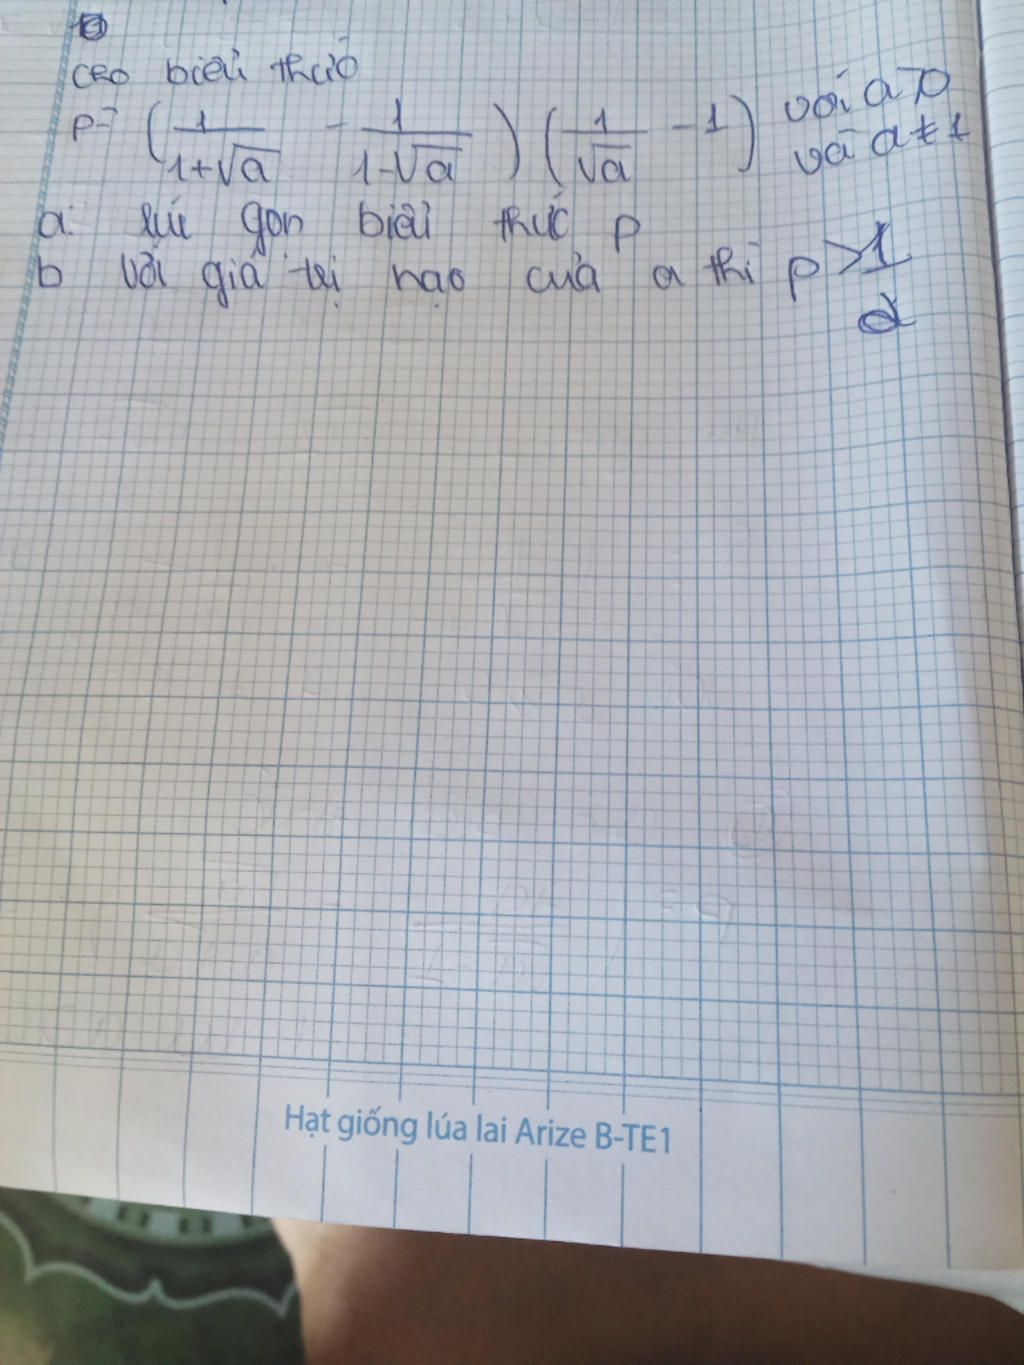 cho biểu thức
P = (1/(1+√a) - 1/(1-√a)) (1/√a - 1) với a > 0 và a ≠ 1
a. rút gọn biểu thức P
b với giá trị nào của a thì P > 1/2
Hạt giống lúa lai Arize B-TE1